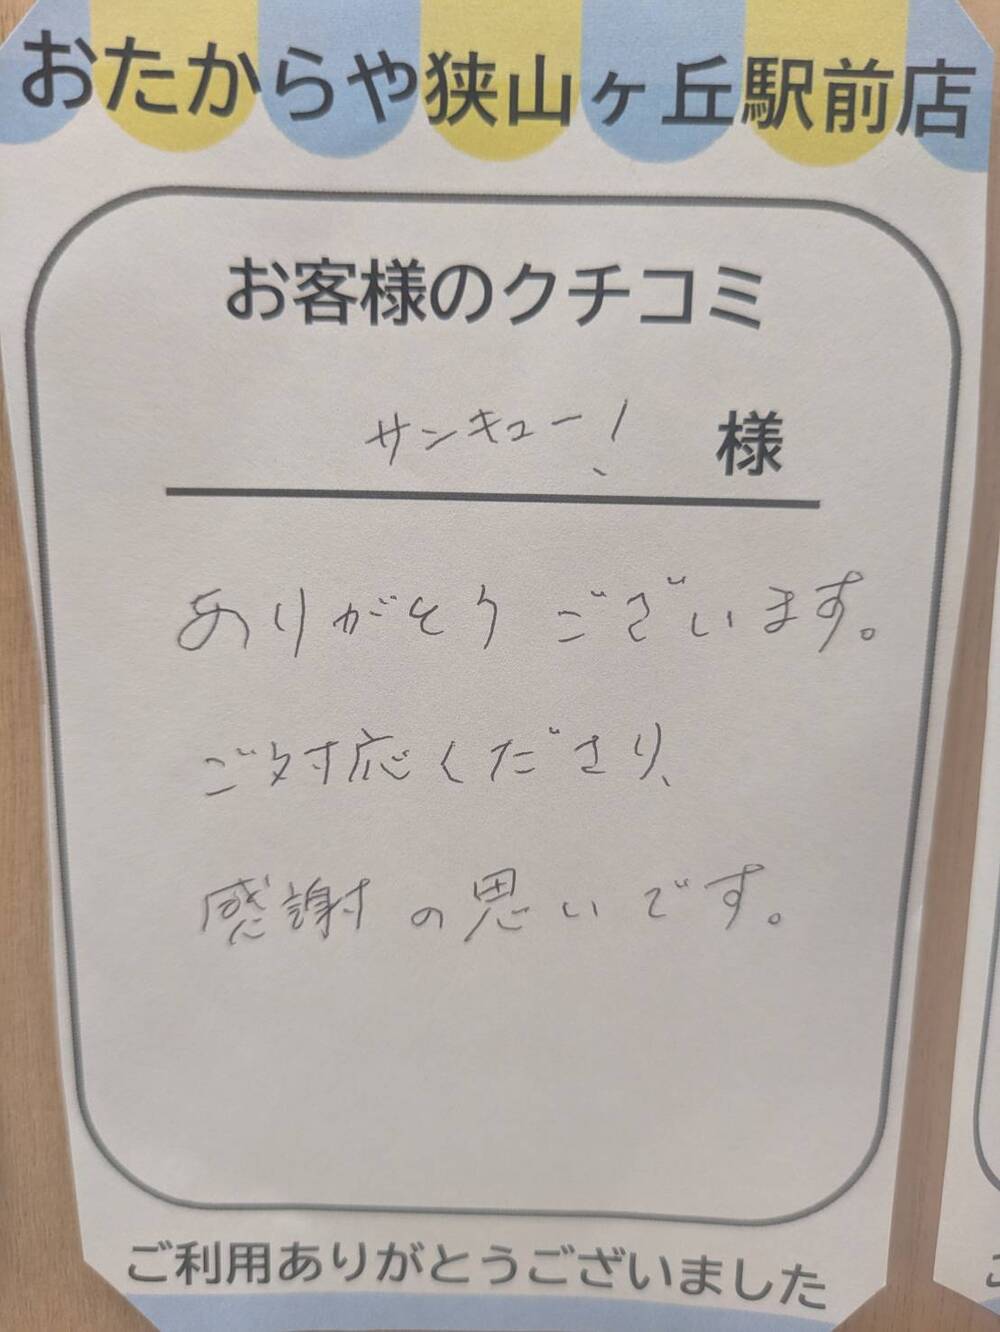 おたからや狭山ヶ丘駅前店
お客様のクチコミ
サンキュー! 様
ありがとうございます。
ご対応くださり、
感謝の思いです。
ご利用ありがとうございました